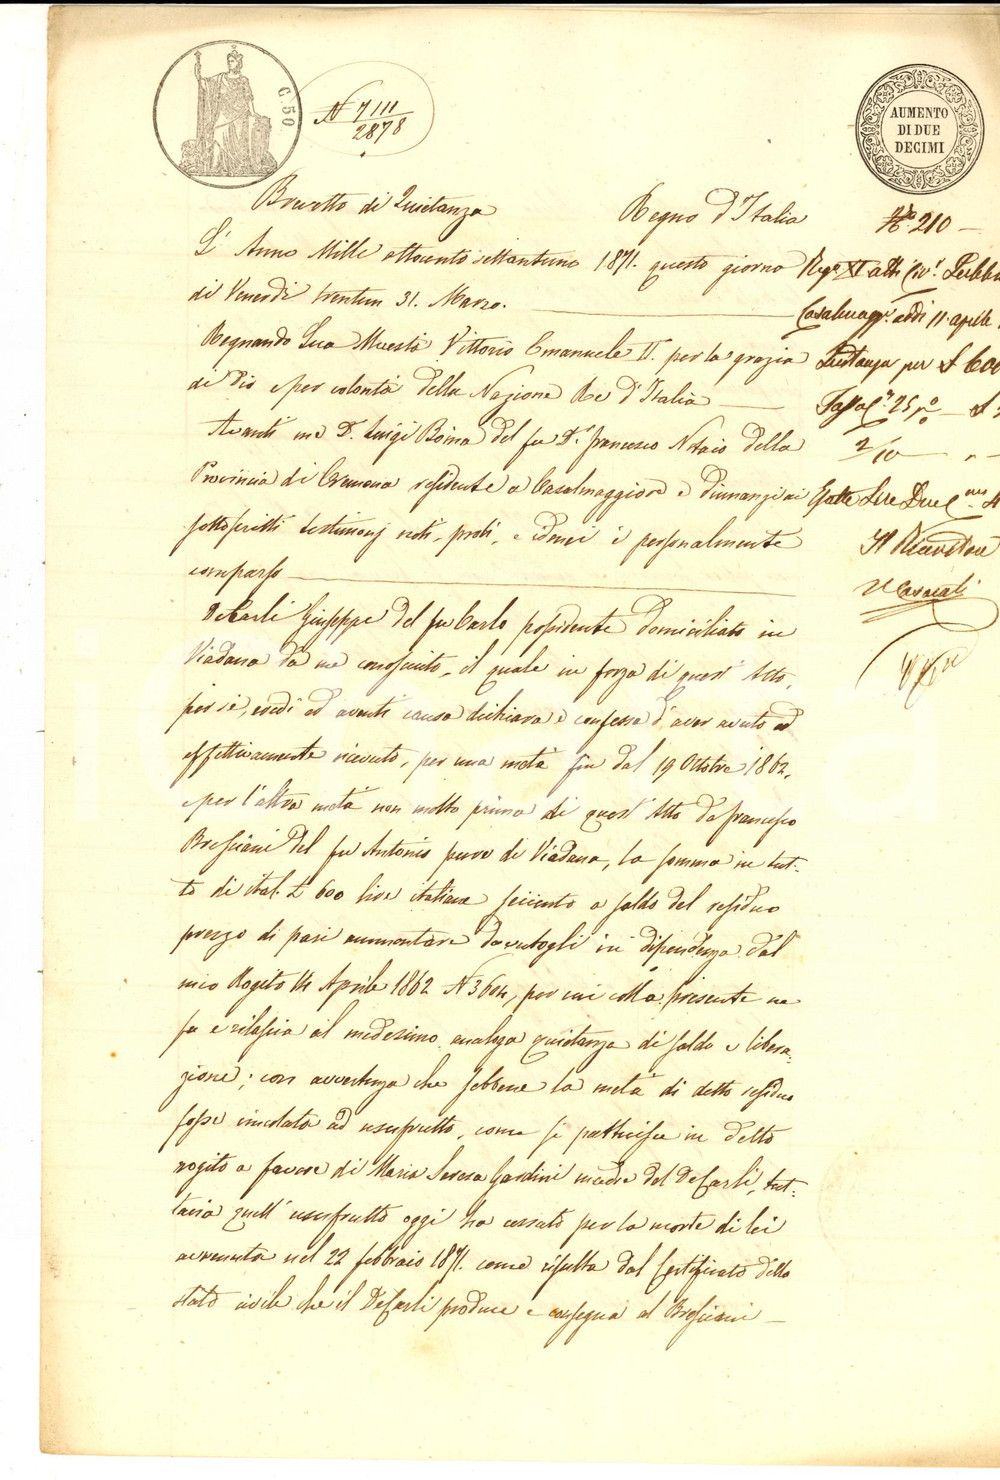 C. 50
N 7111
2878
AUMENTO
DI DUE
DECIMI
Brevetto di Quietanza
Regno d'Italia
N.º 210
L'Anno Mille ottocento settantuno 1871. questo giorno
di Venerdì trentun 31. Marzo.
Regnando Sua Maestà Vittorio Emanuele II. per la grazia
di Dio e per volontà della Nazione Re d'Italia
Avanti me D.r Luigi Boina del fu D.r Francesco Notaio della
Provincia di Cremona residente a Casalmaggiore e dinnanzi ai
sottoscritti testimonj noti, probi, e idonei è personalmente
comparso
DeCarli Giuseppe del fu Carlo possidente domiciliato in
Viadana da me conosciuto, il quale in forza di quest'Atto,
per sè, eredi ed aventi causa dichiara e confessa d'aver avuto ed
effettivamente ricevuto, per una metà fin dal 19 Ottobre 1862,
e per l'altra metà non molto prima di quest'Atto da Francesco
Bresciani del fu Antonio pure di Viadana, la somma in tut-
to di ital. £ 600 lire italiane seicento a saldo del residuo
prezzo di pari ammontare dovutogli in dipendenza dal
mio Rogito 14 Aprile 1862 N 3604, per cui colla presente ne
fa e rilascia al medesimo analoga quietanza di saldo e libera-
zione; con avvertenza che sebbene la metà di detto residuo
fosse vincolata ad usufrutto, come si pattuiva in detto
rogito a favore di Maria Teresa Gardini madre del DeCarli, tut-
tavia quell'usufrutto oggi ha cessato per la morte di lei
avvenuta nel 22 febbraio 1871. come risulta dal Certificato dello
stato civile che il DeCarli produce e consegna al Bresciani
Reg.º Atti Civ.i Pubbl
Casalmagg.e addì 11 aprile
Quitanza per £ 600
Tassa C.i 25 p.% £
2/10
Esatte Lire Due C.mi
Il Ricevitore